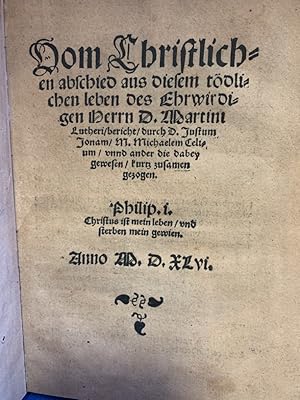 Vom Christlich-
en abschied aus diesem tödli-
chen leben des Ehrwirdi-
gen Herrn D. Martini
Lutheri/bericht/durch D. Justum
Jonam/ M. Michaelem Celi-
um/ vnnd ander die dabey
gewesen/ kurtz zusamen
gezogen.
Philip. i.
Christus ist mein leben/ vnd
sterben mein gewien.
Anno M. D. XLvi.